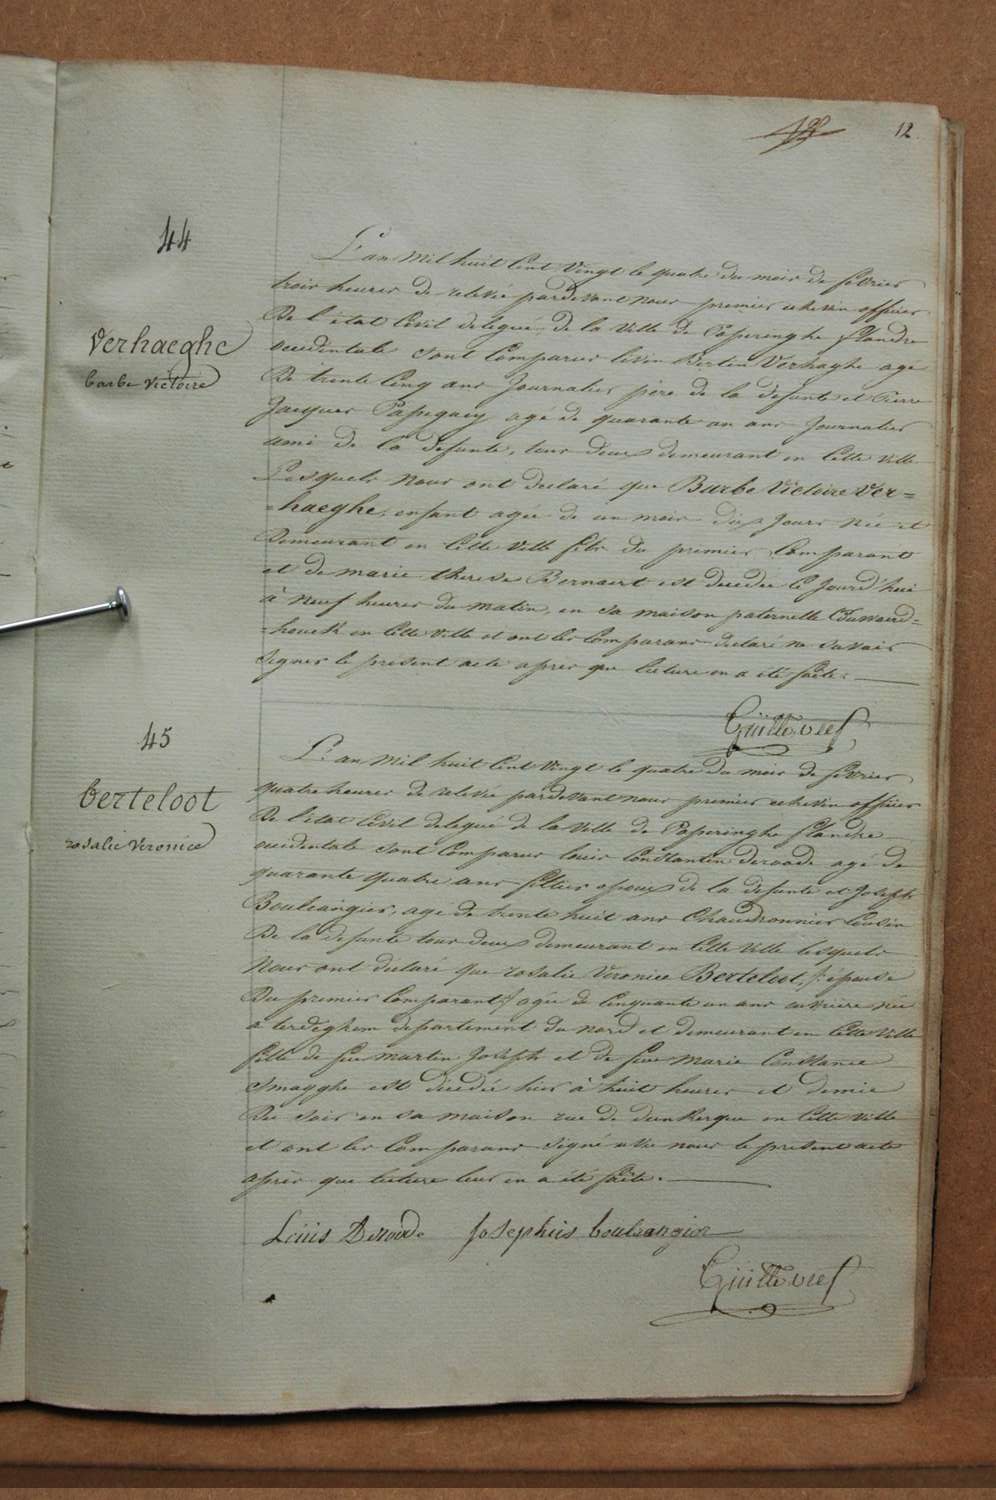 12
44
Verhaeghe
barbe Victoire
L'an Mil huit Cent Vingt le quatre du mois de fevrier
trois heures de relevée pardevant nous premier echevin officier
De l'état Civil delegué de la Ville de Poperinghe flandre
occidentale sont Comparus livin Bertin Verhaghe agé
De trente Cinq ans Journalier père de la defunte et Pierre
Jacques agé de quarante un ans Journalier
ami de la defunte, tous deux demeurant en Cette Ville
Lesquels Nous ont declaré que Barbe Victoire Ver=
=haeghe, enfant agée de un mois dix Jours née et
Demeurant en Cette Ville fille du premier Comparant
et de marie therese Bernaert est decedée le Jourd'hui
à Neuf heures du matin, en sa maison paternelle
=houck en Cette Ville et ont les Comparans declaré ne savoir
Signer le present acte après que lecture en a été faite.
45
Berteloot
rosalie Veronice
L'an Mil huit Cent Vingt le quatre du mois de fevrier
quatre heures de relevée pardevant nous premier echevin officier
De l'état Civil delegué de la Ville de Poperinghe flandre
occidentale sont Comparus louis Constantin Deroode agé de
quarante quatre ans epoux de la defunte et Joseph
Boulsangier, agé de trente huit ans Chaudronnier Cousin
De la defunte tous deux demeurant en Cette Ville lesquels
Nous ont déclaré que rosalie Veronice Berteloot, épouse
Du premier Comparant, agée de Cinquante un ans ouvriere née
a terdeghem departement du nord et demeurant en Cette Ville
fille de feu martin Joseph et de feue Marie Constance
Smagghe est décedée hier à huit heures et demie
Du soir en sa maison rue de dunkerque en Cette Ville
et ont les Comparans Signé avec nous le present acte
après que lecture leur en a été faite.
Louis Deroode Josephus boulsangier